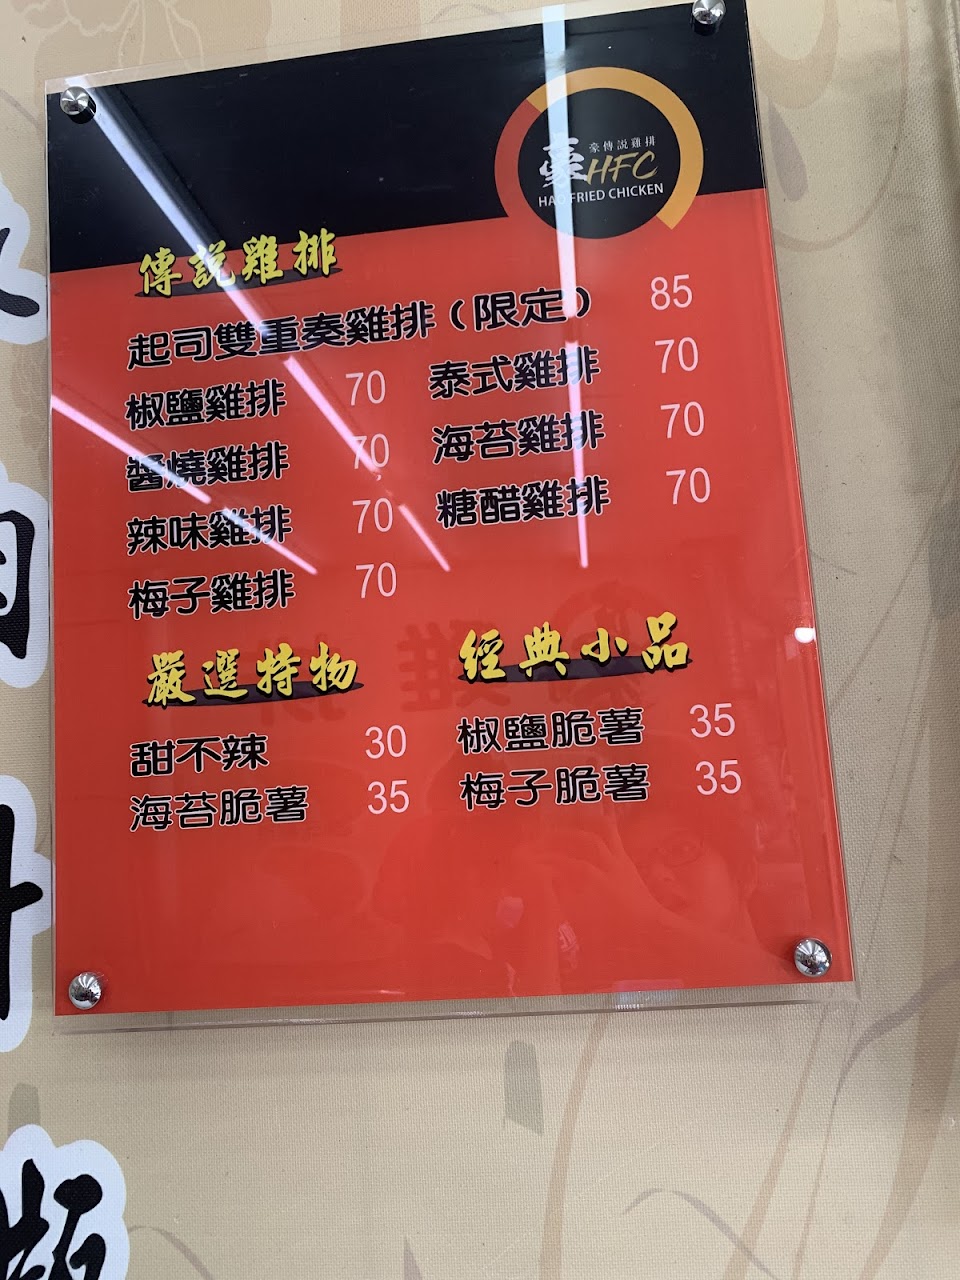 豪傳說雞排
豪HFC
HAO FRIED CHICKEN
傳說雞排
起司雙重奏雞排(限定) 85
椒鹽雞排 70 泰式雞排 70
醬燒雞排 70 海苔雞排 70
辣味雞排 70 糖醋雞排 70
梅子雞排 70
嚴選特物 經典小品
甜不辣 30 椒鹽脆薯 35
海苔脆薯 35 梅子脆薯 35